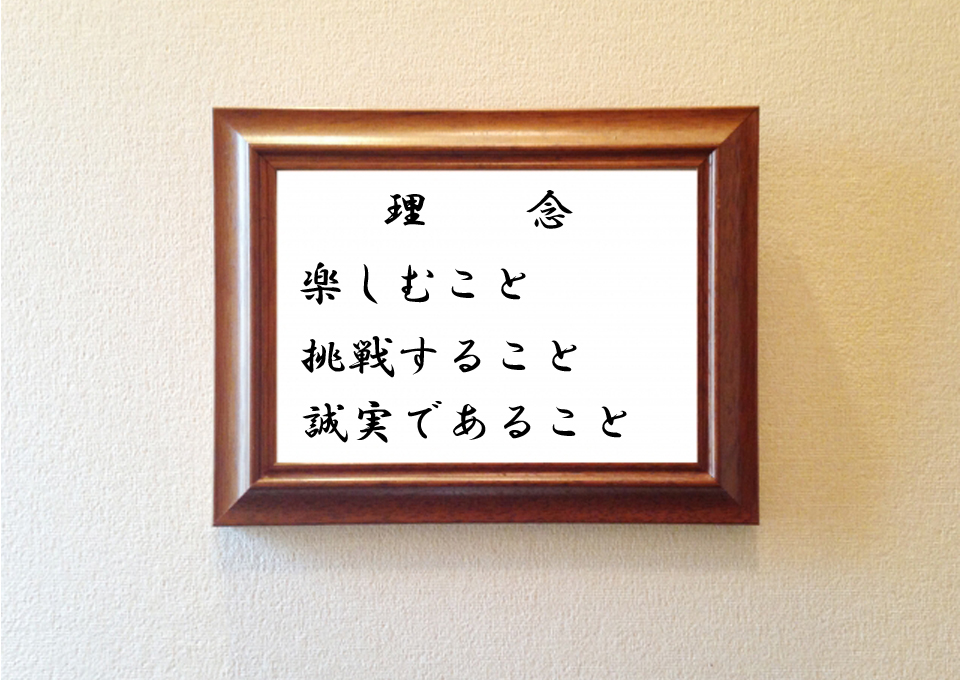 理 念
楽しむこと
挑戦すること
誠実であること